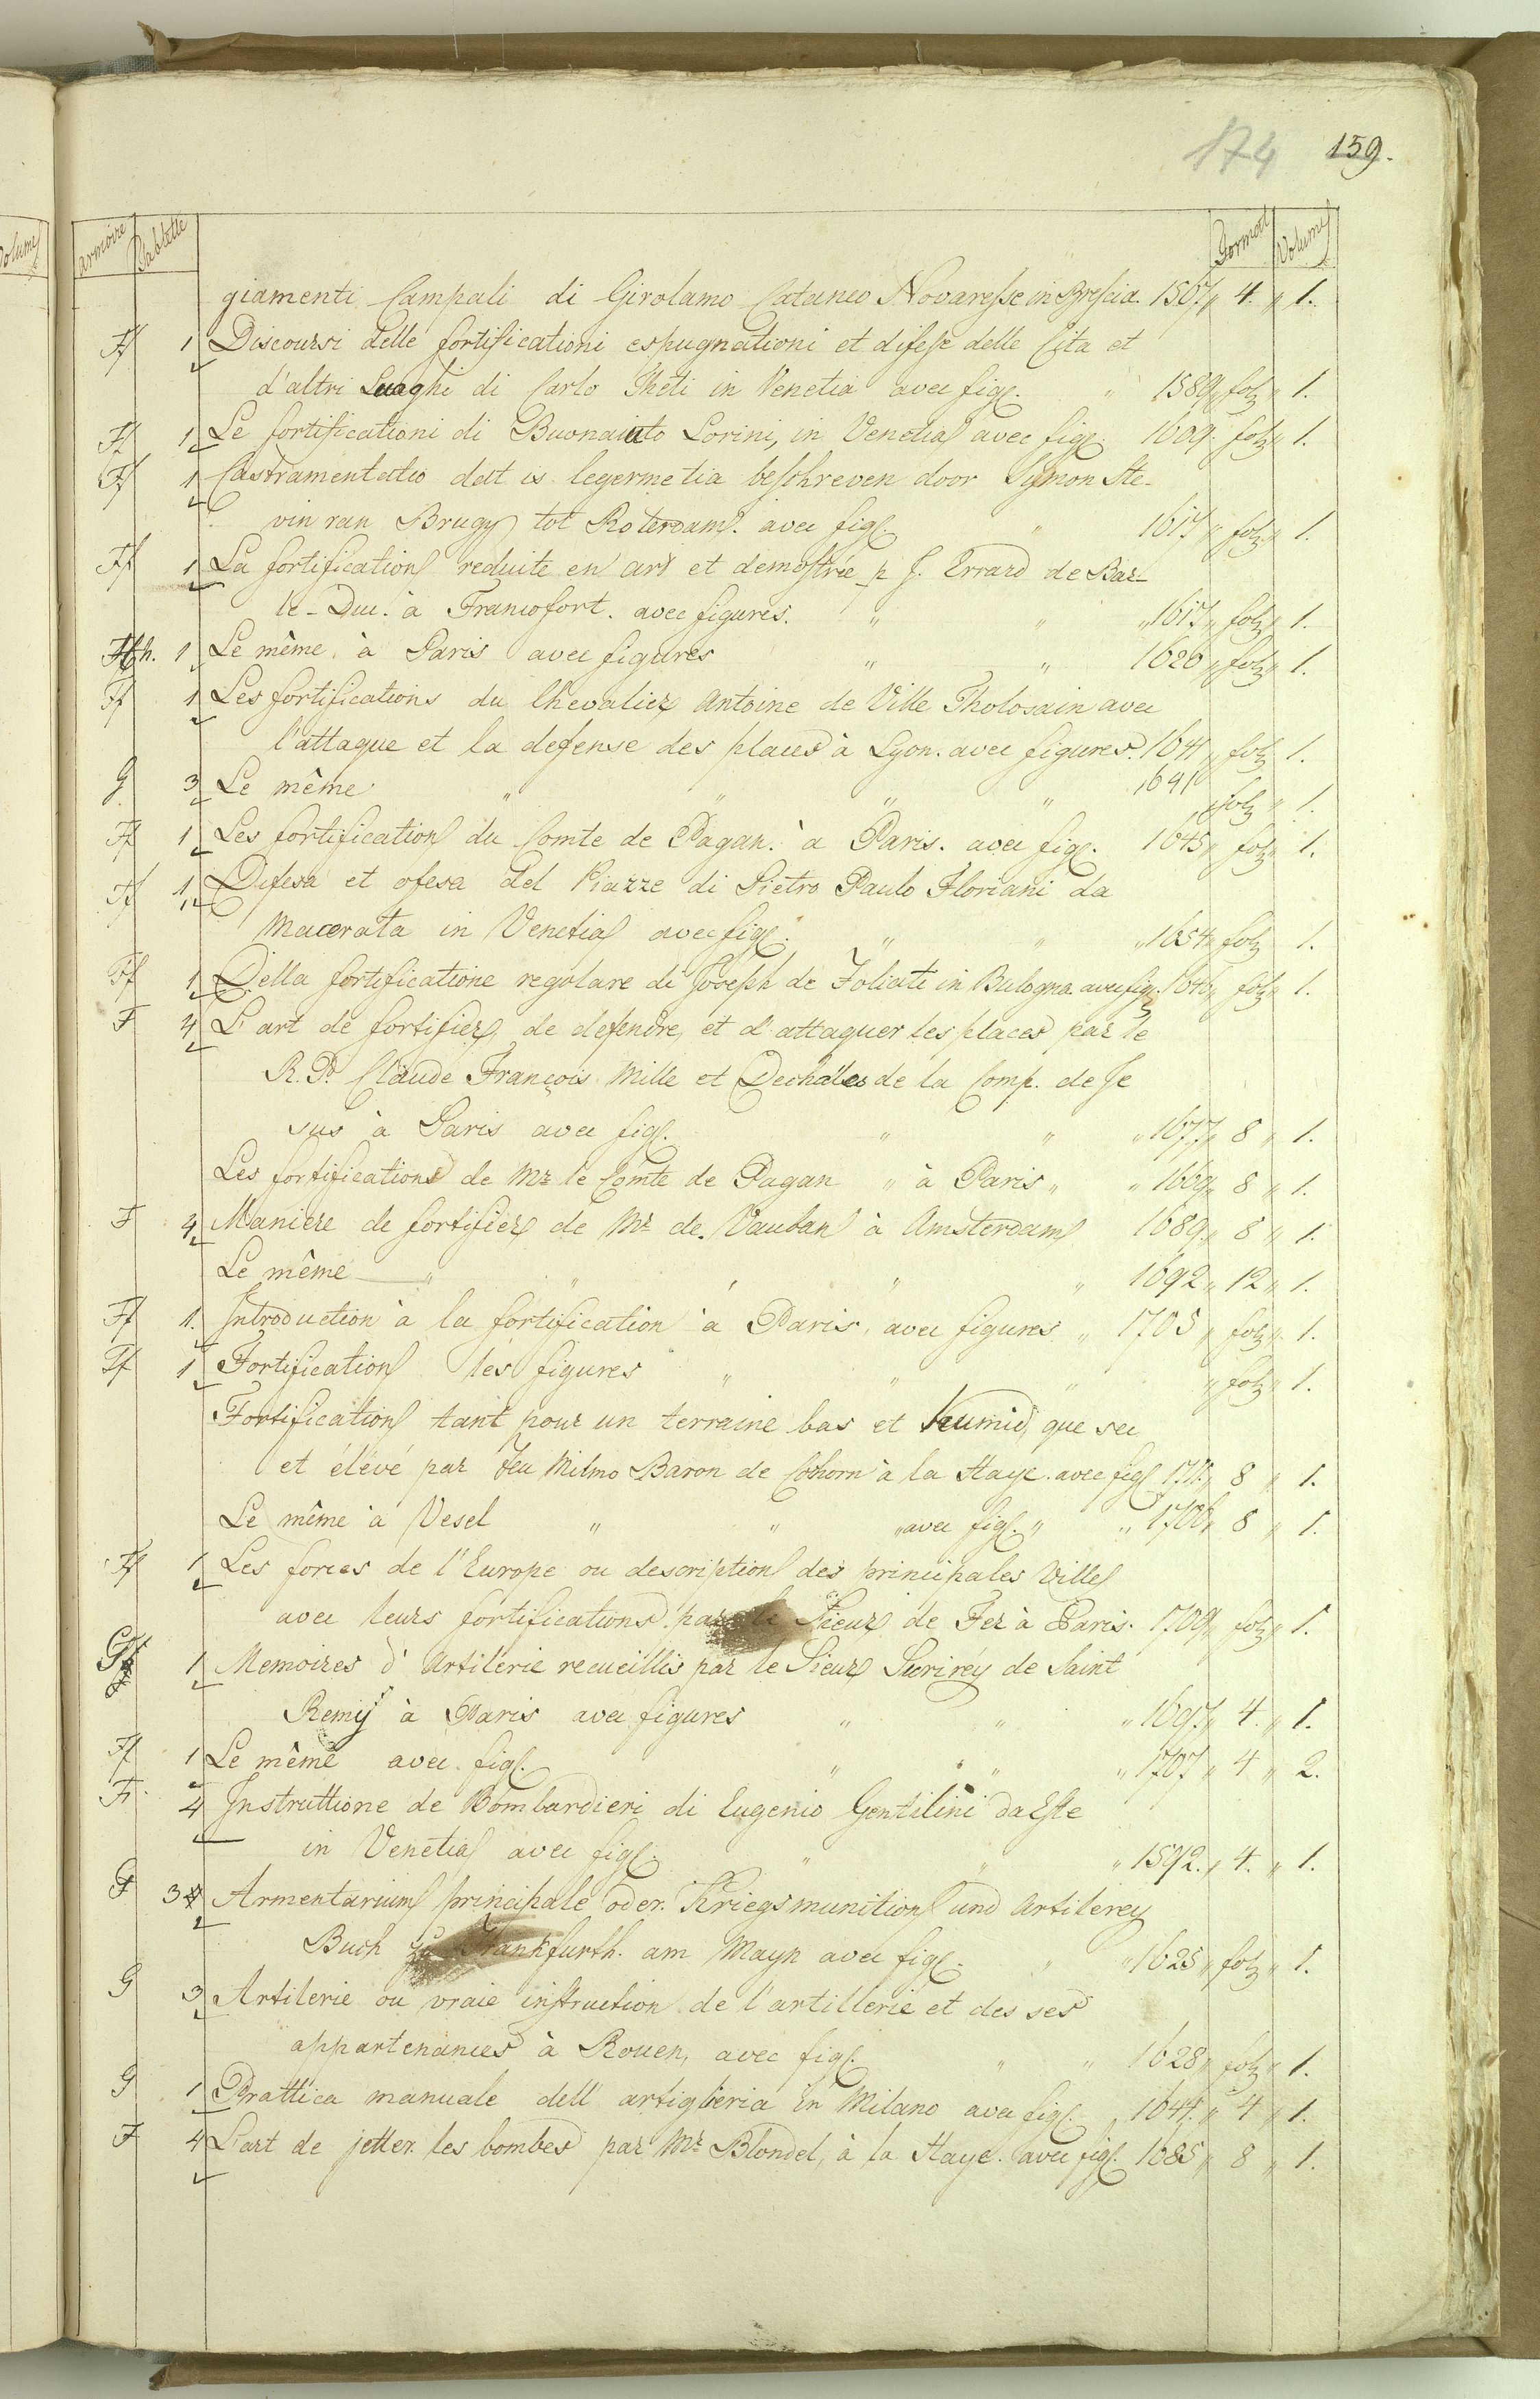 174 159.
armoire Tablette Format Volumes
giamenti Campali di Girolamo Cataneo Novaresse in Brescia. 1567 „ 4. „ 1.
Ff 1 Discoursi delle fortificationi espugnationi et difese delle Cita et
d'altri Luoghi di Carlo Theti in Venetia avec fig. „ 1589 „ fol „ 1.
Ff 1 Le fortificationi di Buonaiuto Lorini, in Venetia avec fig. 1609. fol „ 1.
Ff 1 Castramentatio dat is legermetia beschreven door Symon Ste-
vin van Brugy tot Roterdam. avec fig. „ 1617 „ fol „ 1.
Ff 1 La fortification reduite en art et demostrée p J. Errard de Bar-
le-Duc. à Francofort. avec figures. „ „ „ 1617 „ fol „ 1.
h. 1 Le même, à Paris avec figures „ „ 1620 „ fol „ 1.
Ff 1 Les fortifications du Chevalier Antoine de Ville Tholosain avec
l'attaque et la defense des places à Lyon. avec figures. 1641 „ fol 1.
G 3 Le même „ „ „ „ 1641 „ fol „ 1.
Ff 1 Les fortification du Comte de Pagan. à Paris. avec fig. 1645 „ fol „ 1.
Ff 1 Difesa et ofesa del Piazze di Pietro Paulo Floriani da
Macerata in Venetia avec fig. „ „ „ 1654 „ fol 1.
Ff 1 Della fortificatione regolare di Joseph de Foliati in Bulogna avec fig. 1646 „ fol „ 1.
F 4 L'art de fortifier, de defendre, et d'attaquer les places par le
R. P. Claude François Mille et Dechales de la Comp. de Je
sus à Paris avec fig. „ „ „ 1677 „ 8 „ 1.
Les fortifications de Mr le Comte de Pagan „ à Paris „ „ 1669 „ 8 „ 1.
F 4 Maniere de fortifier de Mr de Vauban à Amsterdam 1689 „ 8 „ 1.
Le même „ „ „ „ „ 1692 „ 12 „ 1.
Ff 1. Introduction à la fortification à Paris, avec figures „ 1705 „ fol „ 1.
Ff 1 Fortification les figures „ „ „ „ fol „ 1.
Fortification tant pour un terraine bas et humid, que sec
et élévé par feu Milmo Baron de Cohorn à la Haye. avec fig 1711 „ 8 „ 1.
Le même à Vesel „ „ „ avec fig. „ „ 1706 „ 8 „ 1.
Ff 1 Les forces de l'Europe ou description des principales Villes
avec leurs fortifications. par le Sieur de Fer à Paris. 1709 „ fol „ 1.
1 Memoires d'Artilerie recueillis par le Sieur Surirey de Saint
Remy à Paris avec figures „ „ „ 1697 „ 4. „ 1.
Ff 1 Le même avec fig. „ „ „ 1707 „ 4 „ 2.
F. 4 Instruttione de Bombardieri di Eugenio Gentilini da Este
in Venetia avec fig. „ „ „ 1592. „ 4. „ 1.
G 3 Armentarium principale oder. Kriegsmunition und Artilerey
Buch zu Frankfurth. am Mayn avec fig. „ „ 1625 „ fol „ 1.
G 3 Artilerie ou vraie instruction de l'artillerie et des ses
appartenances à Rouen, avec fig. „ „ 1628 „ fol „ 1.
G 1 Prattica manuale dell artiglieria in Milano avec fig. „ 1641. „ 4 „ 1.
F 4 L'art de jetter les bombes par Mr Blondel, à la Haye. avec fig. 1685 „ 8 „ 1.